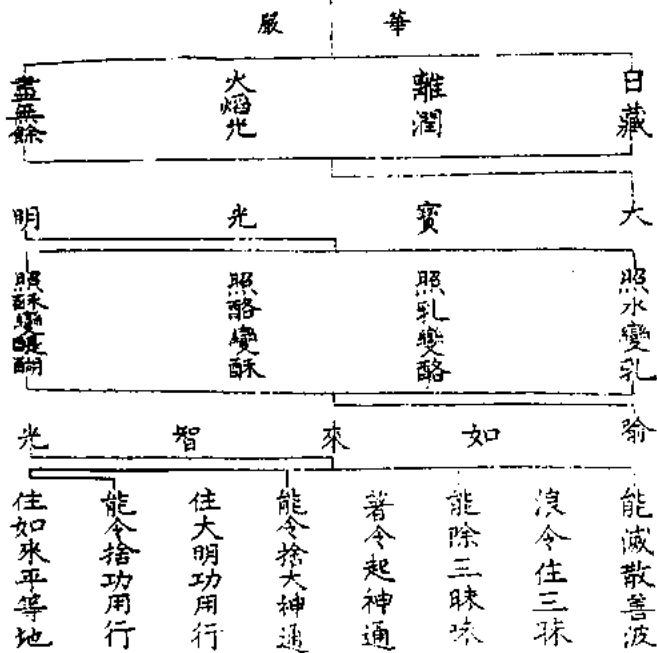 華嚴
日藏
離潤
火熖光
盡無餘
大寶光明
照水變乳
照乳變酪
照酪變酥
照酥變醍醐
喻如來智光
能滅散善波
浪令住三昧
能除三昧味
著令起神通
能令捨大神通
住大明功用行
能令捨功用行
住如來平等地